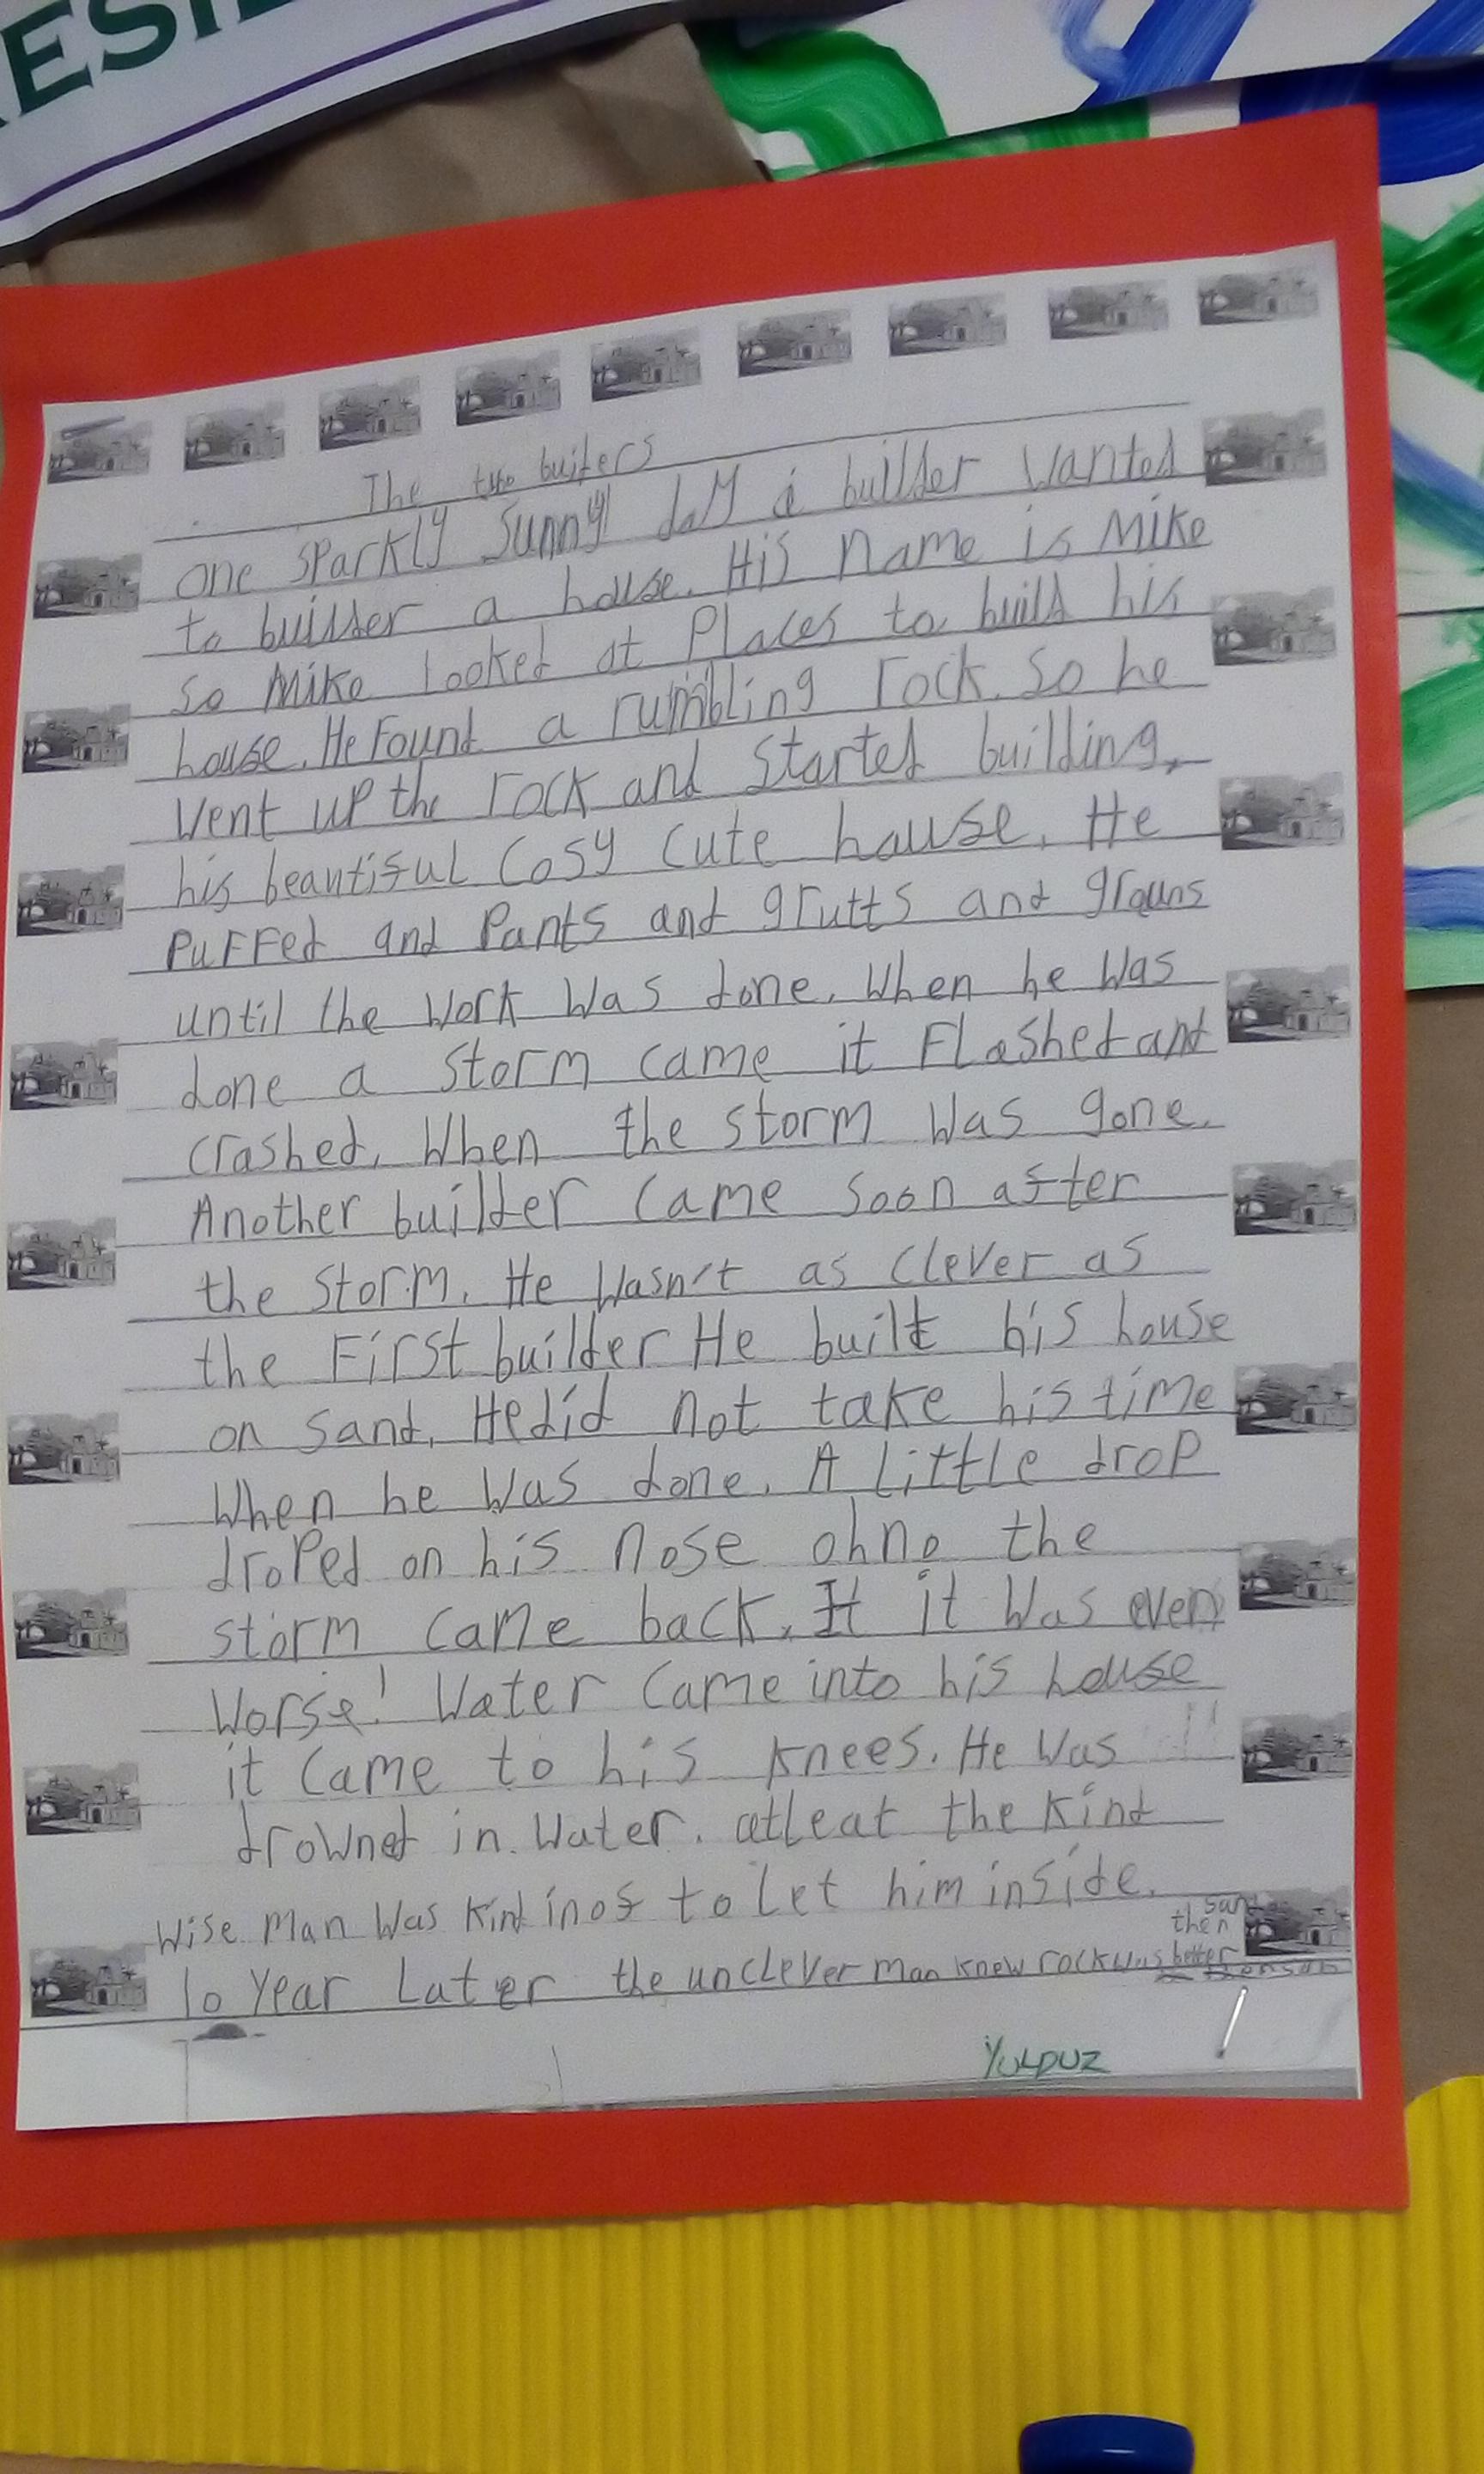 RESIL
The two builers
one sparkly sunny day a buillder wanted
to buillder a house. His name is Mike
so Mike looked at Places to build his
house. He Found a rumbling rock. so he
went up the rock and started buillding,
his beautiful Cosy cute hause. He
PuFFed and Pants and grutts and grouns
until the work was done. When he was
done a storm came it Flashed and
crashed. When the storm was gone.
Another builder came soon after
the storm. He wasn't as clever as
the First builder He built his house
on sand. He did not take his time
When he was done. A Little drop
droped on his nose ohno the
storm came back. It it was even
Worse! Water came into his house
it came to his knees. He was
drowned in water. atleat the kind
wise man was kind inof to let him inside.
10 year later the unclever man knew rock was better
then sand
YULDUZ